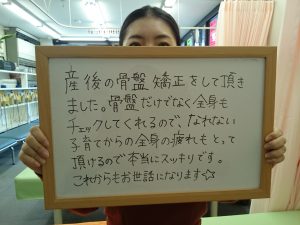 産後の骨盤矯正をして頂き
ました。骨盤だけでなく全身も
チェックしてくれるので、なれない
子育てからの全身の疲れもとって
頂けるので本当にスッキリです。
これからもお世話になります☆